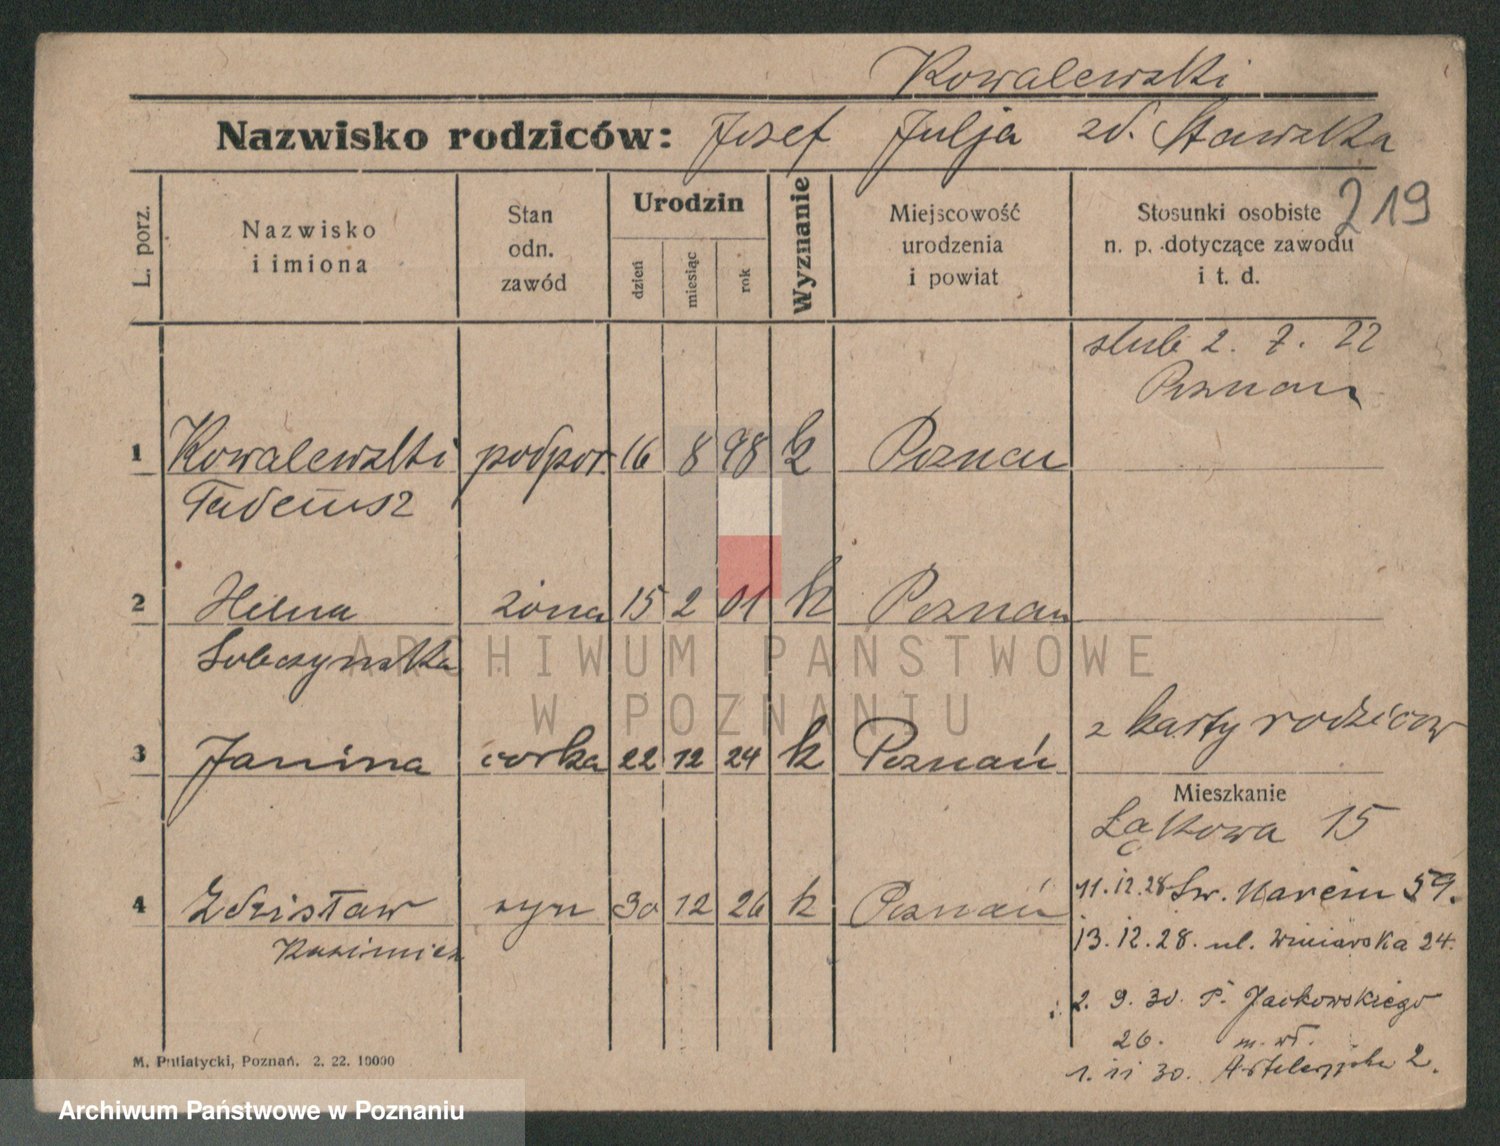 Kowalewski
Nazwisko rodziców: Josef Julja zd. Stawska
219
L. porz.
Nazwisko
i imiona
Stan
odn.
zawód
Urodzin
dzień
miesiąc
rok
Wyznanie
Miejscowość
urodzenia
i powiat
Stosunki osobiste
n. p. dotyczące zawodu
i t. d.
slub 2. 7. 22
Poznan
1 Kowalewski podpor. 16 8 98 k Poznan
Tadeusz
2 Helena żona 15 2 01 k Poznan
Sobczynska
3 Janina corka 22 12 24 k Poznań
z karty rodziców
Mieszkanie
Łąkowa 15
4 Zdzisław syn 30 12 26 k Poznań
Kazimierz
11.12.28 Św. Marcin 59.
13.12.28. ul. Winiarska 24.
2. 9. 30. P. Jackowskiego
26.
1. 11 30. 2.
M. Putiatycki, Poznań. 2. 22. 10000
ARCHIWUM PAŃSTWOWE
W POZNANIU
Archiwum Państwowe w Poznaniu